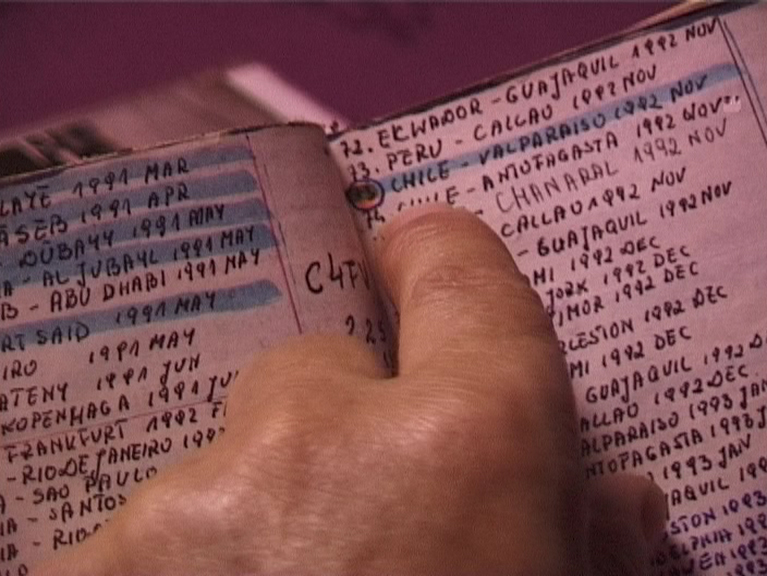 LAYE 1991 MAR
ASEB 1991 APR
DUBAYY 1991 MAY
A - AL JUBAYL 1991 MAY
B - ABU DHABI 1991 MAY
RT SAID 1991 MAY
IRO 1991 MAY
ATENY 1991 JUN
KOPENHAGA 1991 JU
FRANKFURT 1992 F
- RIO DE JANEIRO 199
A - SAO PAULO
IA - SANTOS
IA - RIO
C4FV
2.25
72. EKWADOR - GUAJAQUIL 1992 NOV
73. PERU - CALLAO 1992 NOV
CHILE - VALPARAISO 1992 NOV
CHILE - ANTOFAGASTA 1992 NOV
- CHANARAL 1992 NOV
CALLAO 1992 NOV
- GUAJAQUIL 1992 NOV
MI 1992 DEC
JORK 1992 DEC
IMOR 1992 DEC
LESTON 1992 DEC
MI 1992 DEC
GUAJAQUIL 1992 D
ALLAO 1992 DEC
ALPARAISO 1993 JAN
NTOFAGASTA 1993 JAN
1993 JAN
AQUIL 199
STON 1993
DELPHIA 199
1993